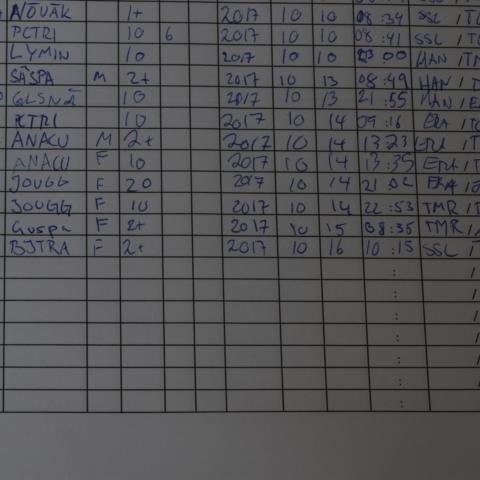 NOVAK 1+ 2017 10 10 08:34 SSL /T
PCTRI 10 6 2017 10 10 08:41 SSL /T
LYMIN 10 2017 10 10 23:00 HAN /TM
SASPA M 2+ 2017 10 13 08:49 HAN /T
GLSNA 10 2017 10 13 21:55 HAN /E
PCTRI 10 2017 10 14 09:16 ERA /T
ANACU M 2+ 2017 10 14 13:23 ERA /T
ANACU F 10 2017 10 14 13:35 ERA /T
JOUGG F 20 2017 10 14 21:02 ERA /
JOUGG F 10 2017 10 14 22:53 TMR /T
Guspa F 2+ 2017 10 15 08:35 TMR /
BJTRA F 2+ 2017 10 16 10:15 SSL /T
: /
: /
: /
: /
: /
: /
: /